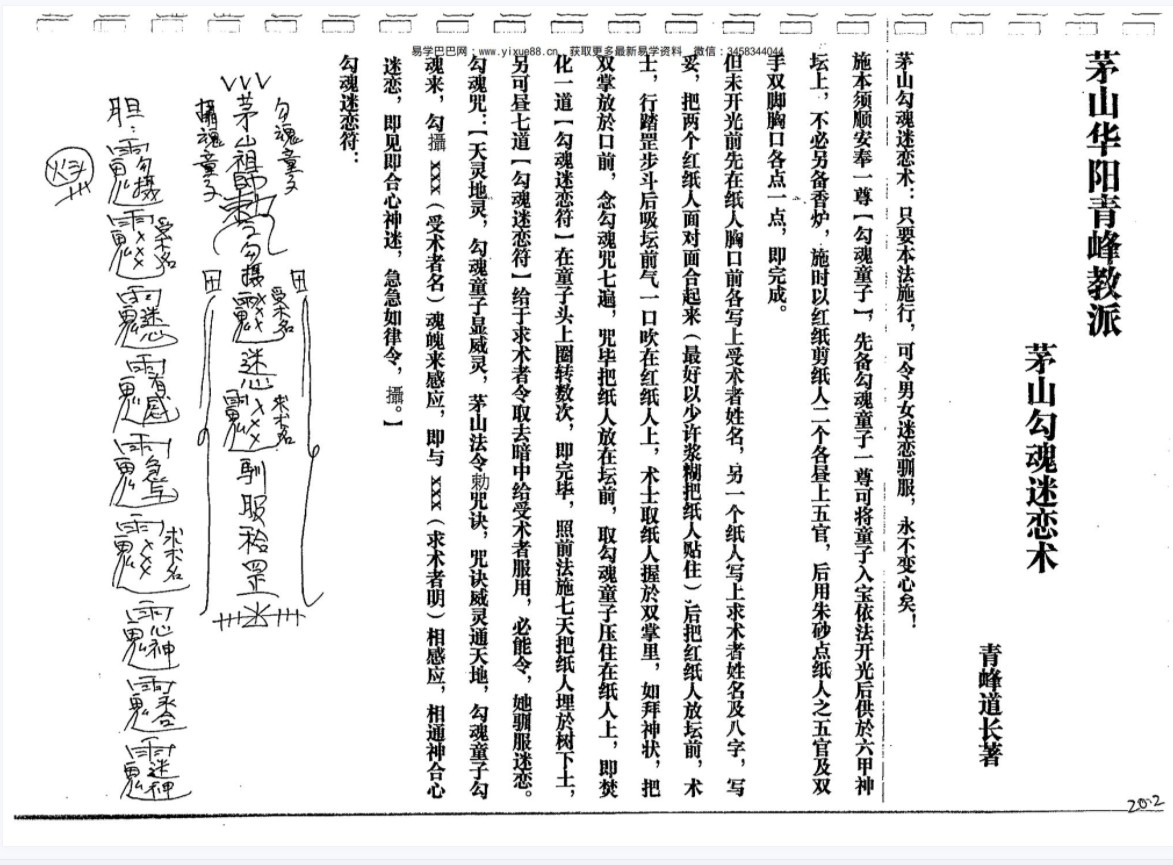 易学巴巴网：www.yixue88.cn 获取更多最新易学资料 微信：3458344044
茅山华阳青峰教派
茅山勾魂迷恋术
青峰道长著
茅山勾魂迷恋术：只要本法施行，可令男女迷恋驯服，永不变心矣！
施本须顺安奉一尊【勾魂童子】，先备勾魂童子一尊可将童子入宝依法开光后供於六甲神
坛上，不必另备香炉，施时以红纸剪纸人二个各昼上五官，后用朱砂点纸人之五官及双
手双脚胸口各点一点，即完成。
但未开光前先在纸人胸口前各写上受术者姓名，另一个纸人写上求术者姓名及八字，写
妥，把两个红纸人面对面合起来（最好以少许浆糊把纸人贴住）,后把红纸人放坛前，术
士，行踏罡步斗后吸坛前气一口吹在红纸人上，术士取纸人握於双掌里，如拜神状，把
双掌放於口前，念勾魂咒七遍，咒毕把纸人放在坛前，取勾魂童子压住在纸人上，即焚
化一道【勾魂迷恋符】在童子头上圈转数次，即完毕，照前法施七天把纸人埋於树下土，
另可昼七道【勾魂迷恋符】给于求术者令取去暗中给受术者服用，必能令，她驯服迷恋。
勾魂咒：【天灵地灵，勾魂童子显威灵，茅山法令勅咒诀，咒诀威灵通天地，勾魂童子勾
魂来，勾攝 xxx（受术者名）魂魄来感应，即与 xxx（求术者明）相感应，相通神合心
迷恋，即见即合心神迷，急急如律令，攝。】
勾魂迷恋符：
勾魂童子
茅山祖師勅令勾攝
攝魂童子
受术名
迷恋
求术名
馴服
罡
胆：
勾攝
受术名
迷恋
有感
求术名
心神
迷神
火头
20.2